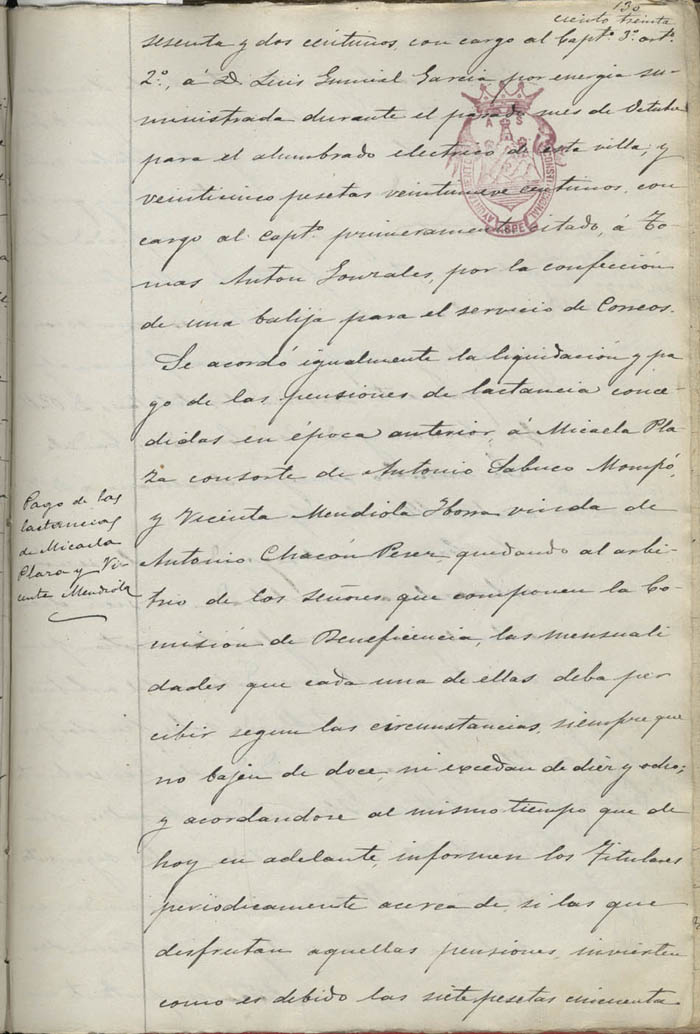 130
ciento treinta
sesenta y dos céntimos, con cargo al Capto. 3º. arto.
2º., á D. Luis Gumiel Garcia por energia su-
ministrada durante el pasado mes de Octubre
para el alumbrado electrico de esta villa; y
veinticinco pesetas veintinueve centimos, con
cargo al Capto. primeramente citado, á To-
mas Anton Gonzales, por la confección
de una balija para el servicio de Correos.
Se acordó igualmente la liquidación y pa
go de las pensiones de lactancia conce-
didas en época anterior, á Micaela Pla
za consorte de Antonio Sabuco Mompó,
y Vicenta Mendiola Iborra viuda de
Antonio Chacón Perez, quedando al arbi-
trio de los señores que componen la Co-
misión de Beneficencia, las mensuali
dades que cada una de ellas deba per
cibir segun las circunstancias, siempre que
no bajen de doce, ni excedan de diez y ocho;
y acordandose al mismo tiempo que de
hoy en adelante, informen los Titulares
periodicamente acerca de si las que
disfrutan aquellas pensiones, invierten
como es debido las siete pesetas cincuenta
Pago de las
lactancias
de Micaela
Plaza y Vi-
centa Mendiola
AYUNTAMIENTO CONSTITUCIONAL
ASPE